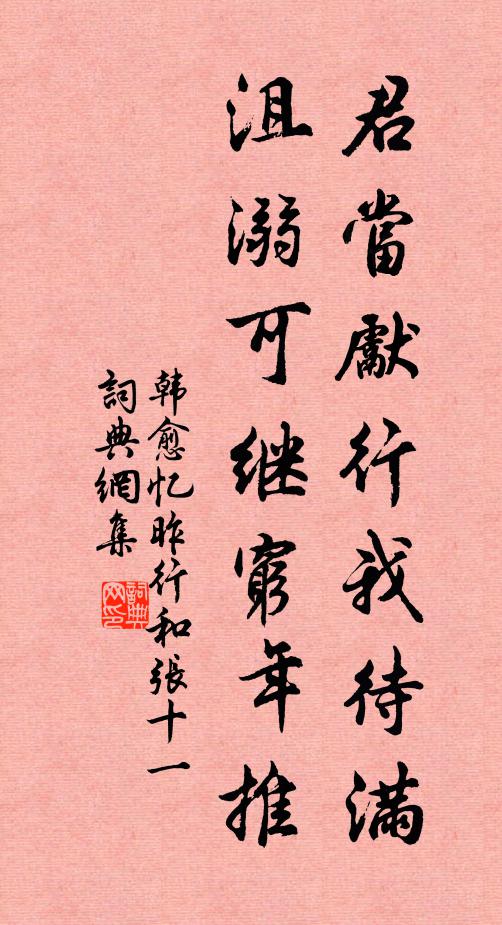 君當獻行我待滿
沮溺可继窮年推
韩愈忆昨行和張十一
詞典網集
詞典网印